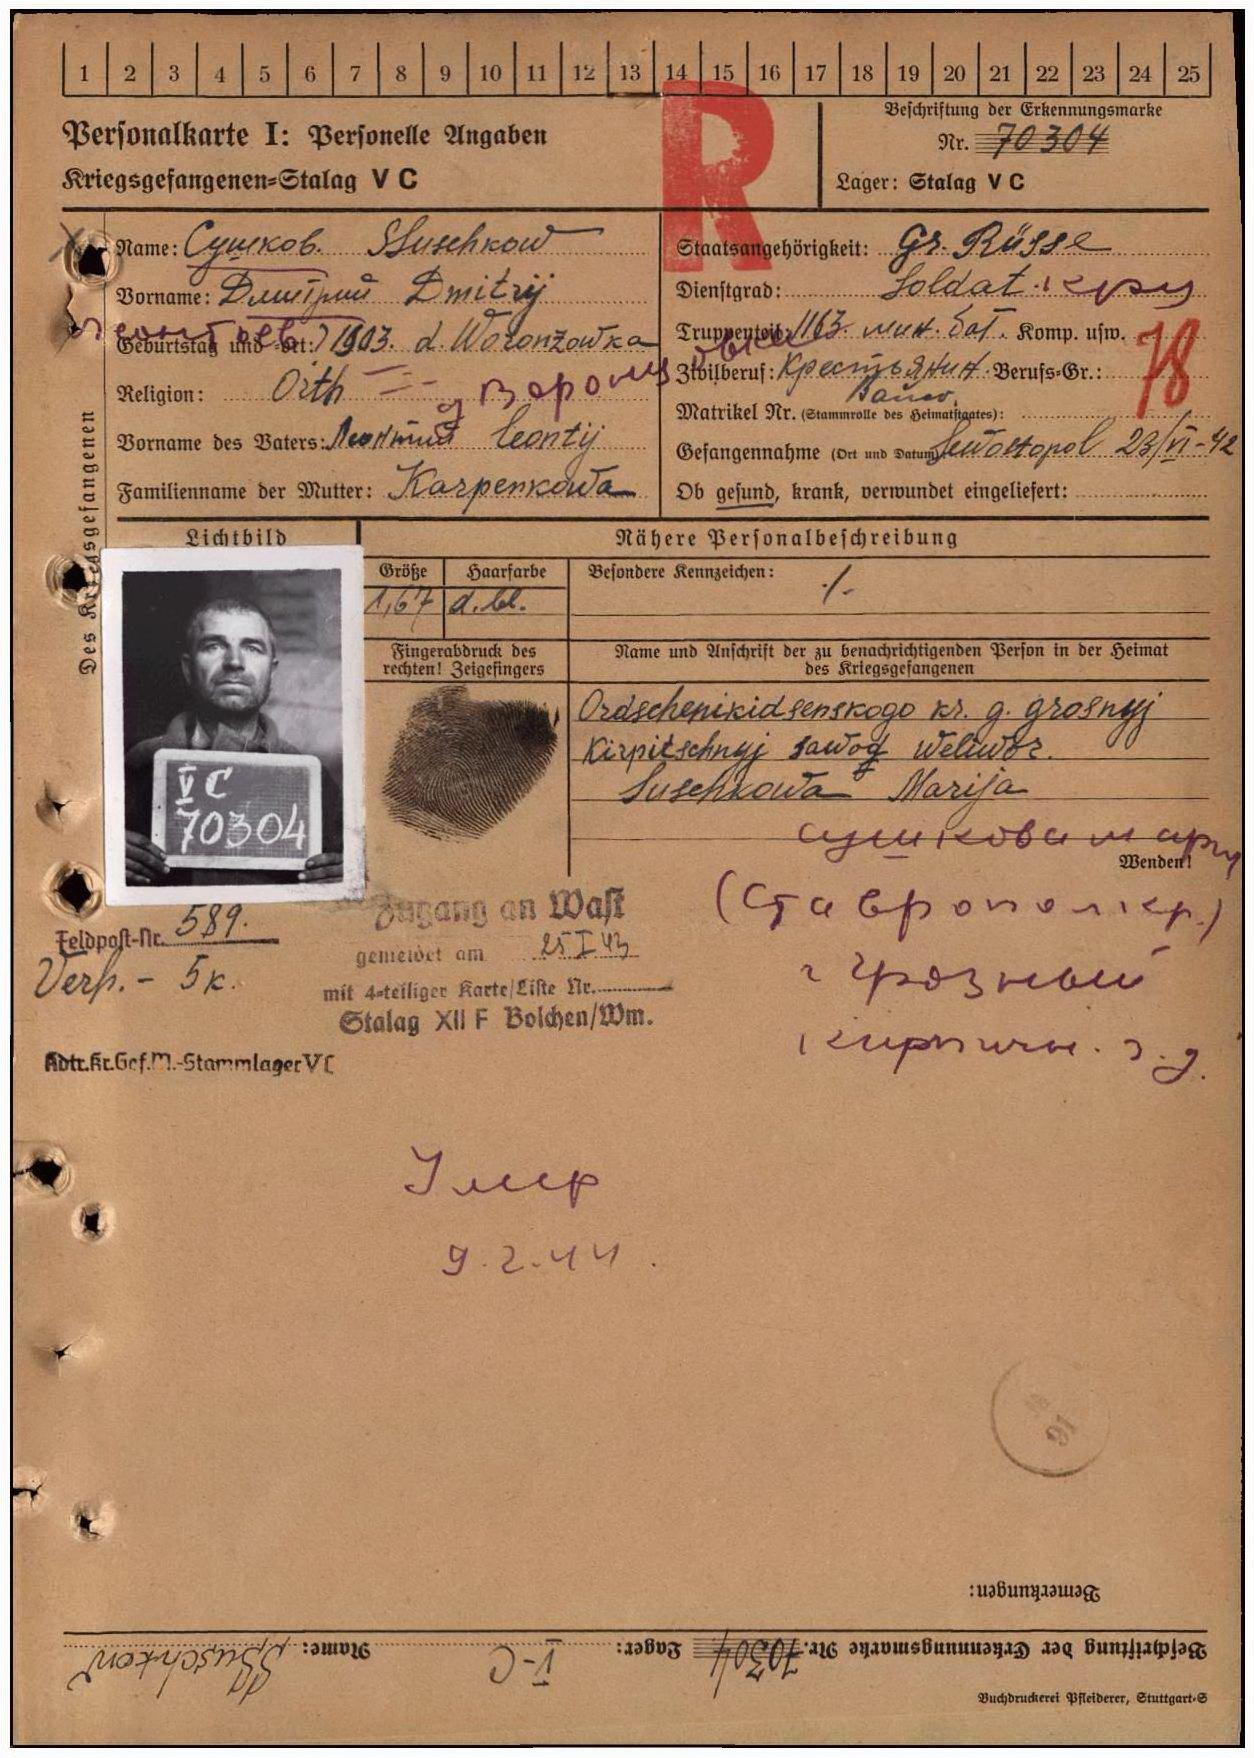 1 2 3 4 5 6 7 8 9 10 11 12 13 14 15 16 17 18 19 20 21 22 23 24 25
Personalkarte I: Personelle Angaben
Kriegsgefangenen-Stalag V C
R
Beschriftung der Erkennungsmarke
Nr. 70304
Lager: Stalag V C
Des Kriegsgefangenen
Name: Сушков. Suschkow
Vorname: Дмитрий Dmitrij
Леонтьев
Geburtstag und -ort: 1903. d. Woronzowka
д Воронцовка
Religion: Orth
Vorname des Vaters: Леонтий Leontij
Familienname der Mutter: Karpenkowa
Staatsangehörigkeit: Gr. Russe
Dienstgrad: Soldat кр
Truppenteil: 1163. мин. бат. Komp. usw.
Zivilberuf: Крестьянин Berufs-Gr.:
78
Bauer.
Matrikel Nr. (Stammrolle des Heimatstaates):
Gefangennahme (Ort und Datum) Sewostopol 23/VI-42
Ob gesund, krank, verwundet eingeliefert:
Lichtbild
Nähere Personalbeschreibung
Größe Haarfarbe Besondere Kennzeichen: ./.
1,67 d. bl.
Fingerabdruck des
rechten! Zeigefingers
Name und Anschrift der zu benachrichtigenden Person in der Heimat
des Kriegsgefangenen
Ordschenikidsenskogo kr. g. grosnyj
Kirpitschnyj sawod
Suschkowa Marija
V C
70304
сушкова мари
Wenden!
(Ставропол кр.)
г Грозный
кирпичн. з. д.
Feldpost-Nr. 589.
Verp. - 5к.
Zugang an Wast
gemeldet am 25 I 43
mit 4-teiliger Karte/Liste Nr.
Stalag XII F Bolchen/Wm.
Kdtr.Kr.Gef.M.-Stammlager V C
Умер
9.2.44.
91
Bemerkungen:
Beschriftung der Erkennungsmarke Nr. 70304 Lager: V-C Name: Suschkow
Buchdruckerei Pfleiderer, Stuttgart-S